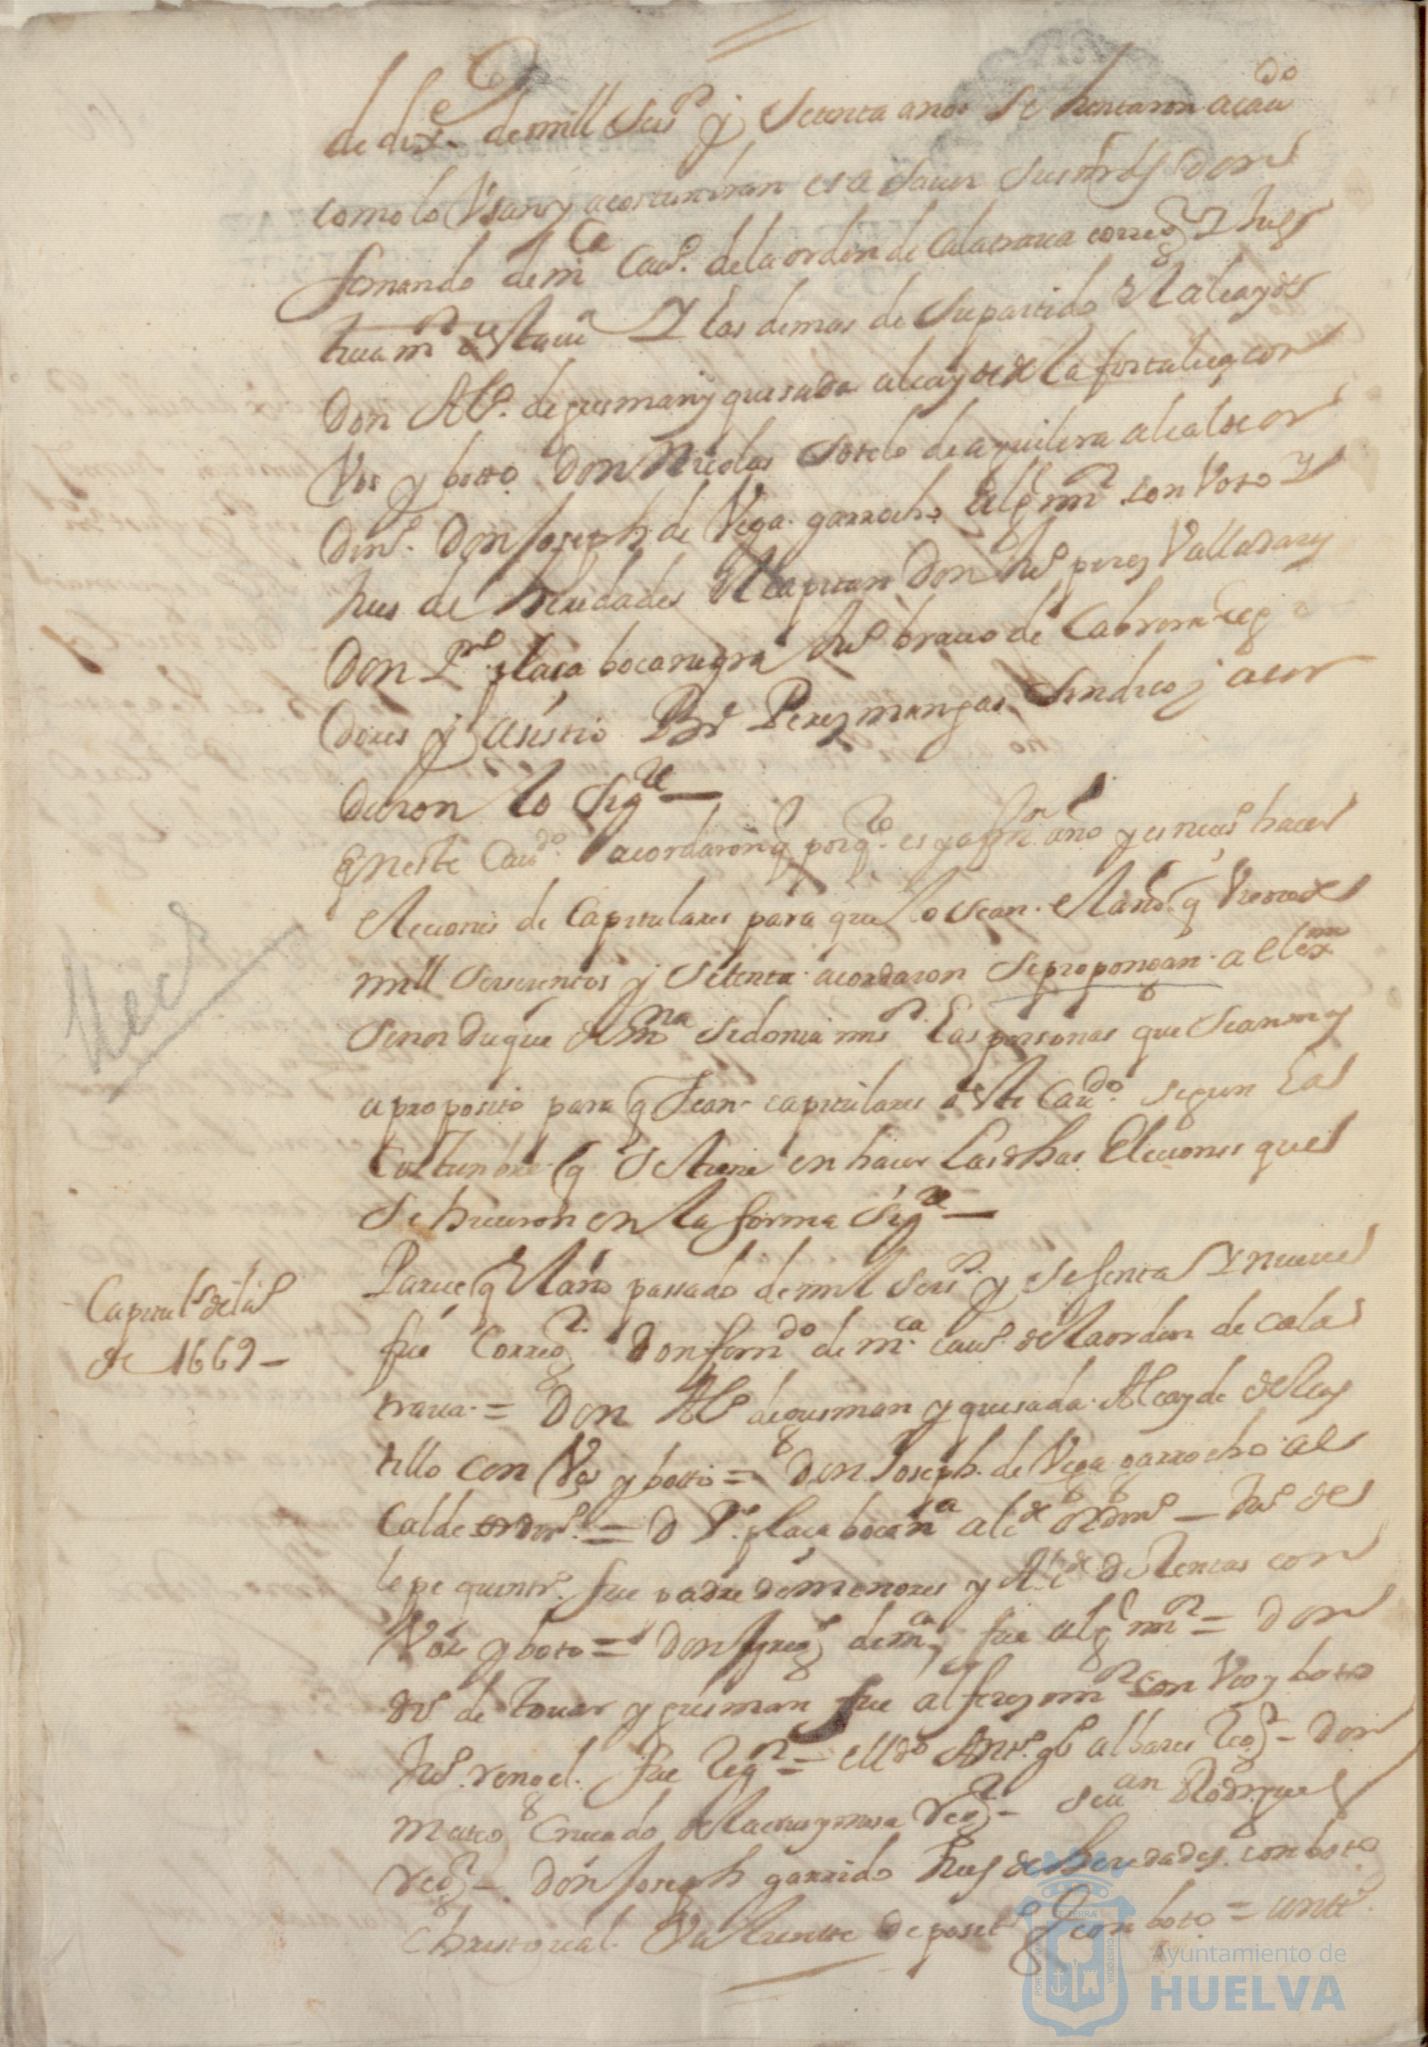 de dix.e de mill seis.s y setenta anos se juntaron a cau.do
como lo Usan y acostumbran es a saver sus mrds Don
fernando de m.ca Cau.o de la orden de Calatraua correg.r y Jues
de su partido El alcayde
Don Al.o de gusman y quesada alcayde de la fortalesa con
Vos y botto Don Nicolas Sotelo de aguilera alcalde or
din.o Don Joseph de Vega garrocho alg.l m.r con Voto y
Jues de heredades El capitan Don Ju.o peres Valladares
Don P.ro plaça bocanegra Ju.o brauo de Cabrera reg
dores y asistio Peres mangas Sindico y acor
daron lo sig.te
En este Cau.do acordaron q porq.e es ya fin de año y es neces.o hacer
elecciones de Capitulares para que lo sean el año q Viene de
mill seiscientos y setenta acordaron se propongan al ex.mo
Señor duque de m.na sidonia mi s.r las personas que sean mas
a proposito para q sean capitulares deste Cau.do segun la
costumbre q se tiene en hacer las dhas Elecciones que
se hicieron en la forma sig.te
Parece q el año passado de mil seis.s y sesenta y nueue
Capitul.s del añ.o
de 1669
fue Correg.r Don fern.do de m.ca cau.o de la orden de cala
traua = Don Al.o de gusman y quesada Alcayde del cas
tillo con Vos y botto = don Joseph de Vega garrocho al
calde ordin.o = D P.o plaça bocan.a alc.de ordin.o – Ju.o de
lepe quint.o fue padre de menores y Al.de de Rentas con
Vos y boto = don greg.o de m.ca fue alg.l m.r = Don
de touar y gusman fue alferes m.r con Vos y boto
Ju.o renoel fue reg.r = el l.do Ant.o albares reg.r – Don
marco Cruçado de la cruz y mesa reg.r – seu.an Rodrigues
reg.r – Don Joseph garrido Jues de heredades con boto
Christoual Valiente deposit.o con boto =
Ayuntamiento de
HUELVA